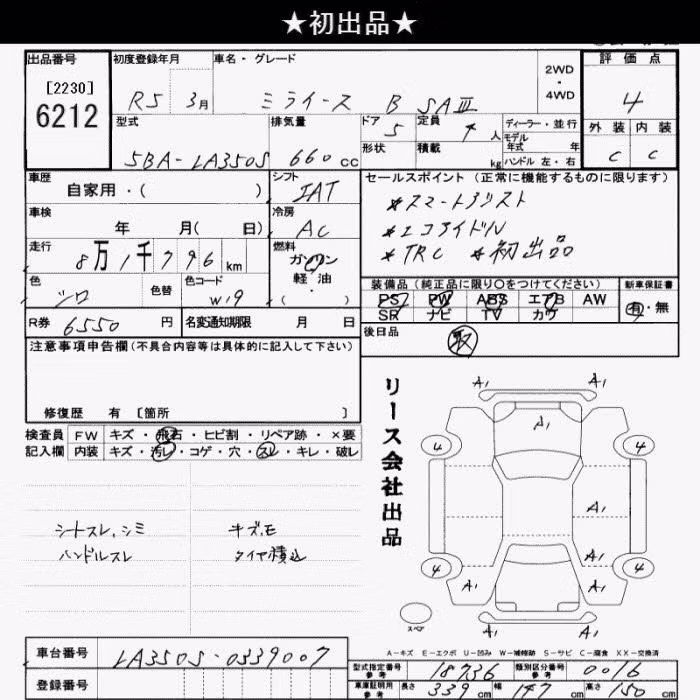 ★初出品★
出品番号 初度登録年月 車名・グレード 評価点
[2230]
6212
R5 3月 ミライース B SAⅢ 2WD・4WD 4
型式 排気量 ドア 定員 ディーラー・並行 外装 内装
5BA-LA350S 660cc 5 4人 モデル年式 年 C C
形状 積載 kg ハンドル 左・右
車歴 シフト セールスポイント(正常に機能するものに限ります)
自家用・( ) IAT *スマートアシスト
車検 冷房 *エコアイドル
年 月( 日) AC *TRC *初出品
走行 8万1千796km 燃料 ガソリン 軽油・( )
色 色替 色コード 装備品(純正品に限り○をつけてください) 新車保証書
シロ W19 PS PW ABS エアB AW 有・無
SR ナビ TV カワ
R券 6550円 名変通知期限 月 日 後日品
取
注意事項申告欄(不具合内容等は具体的に記入して下さい)
修復歴 有 [箇所 ]
検査員 FW キズ・飛石・ヒビ割・リペア跡・×要
記入欄 内装 キズ・汚レ・コゲ・穴・スレ・キレ・破レ
シートスレ,シミ キズ,モ
ハンドルスレ タイヤ積込
リース会社出品
A1 A1
A1
4 4
A1
A1
4 4
A1 A1
A1 A1
スペア
A-キズ E-エクボ U-凹み W-補修跡 S-サビ C-腐食 XX-交換済
車台番号 LA350S-0339007 型式指定番号 参考 18736 類別区分番号 参考 0016
登録番号 車庫証明用 参考 長さ 339cm 幅 147cm 高さ 150cm